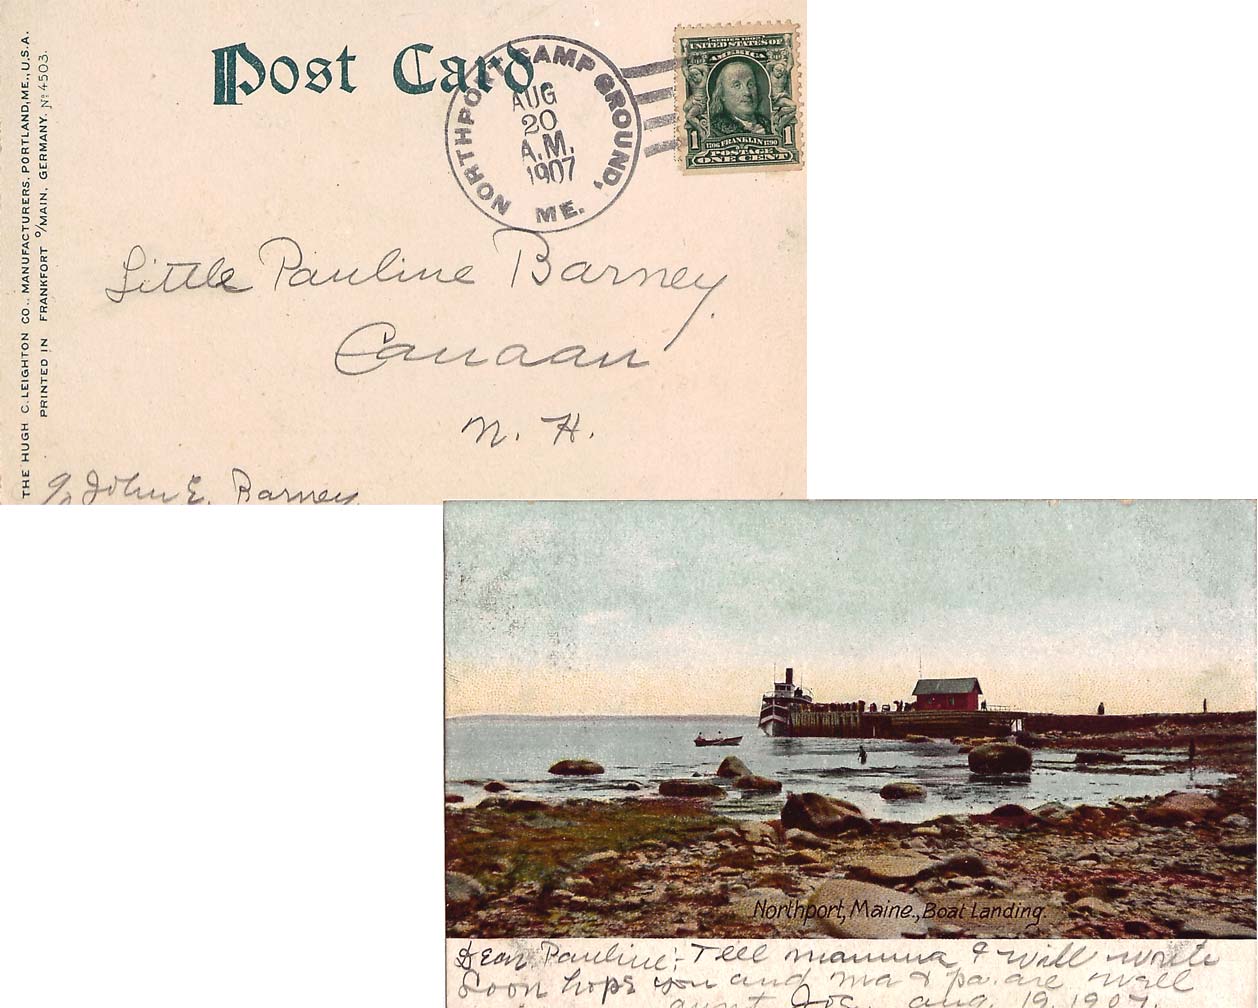 Post Card
NORTHPORT CAMP GROUND, ME.
AUG
20
A.M.
1907
SERIES 1902
UNITED STATES OF
AMERICA
1 1
1706 FRANKLIN 1790
POSTAGE
ONE CENT
THE HUGH C. LEIGHTON CO., MANUFACTURERS, PORTLAND, ME., U.S.A.
PRINTED IN FRANKFORT O/MAIN, GERMANY. No 4503.
Little Pauline Barney,
Canaan
N. H.
c/o John E. Barney
Northport, Maine., Boat Landing.
Dear Pauline:- Tell mamma I will write
Soon hope you and ma & pa. are well
aunt Aug. 19, 1907